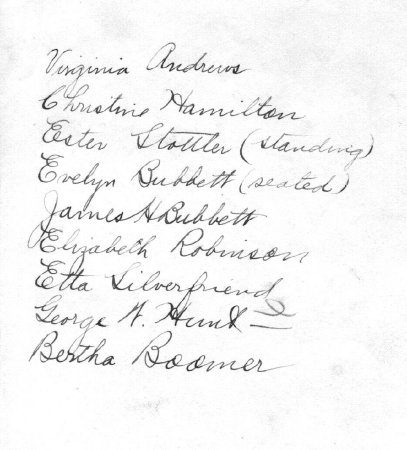 Virginia Andrews
Christine Hamilton
Ester Stottler (standing)
Evelyn Bubbett (seated)
James H Bubbett
Elizabeth Robinson
Etta Silverfriend
George W. Hunt
Bertha Boomer